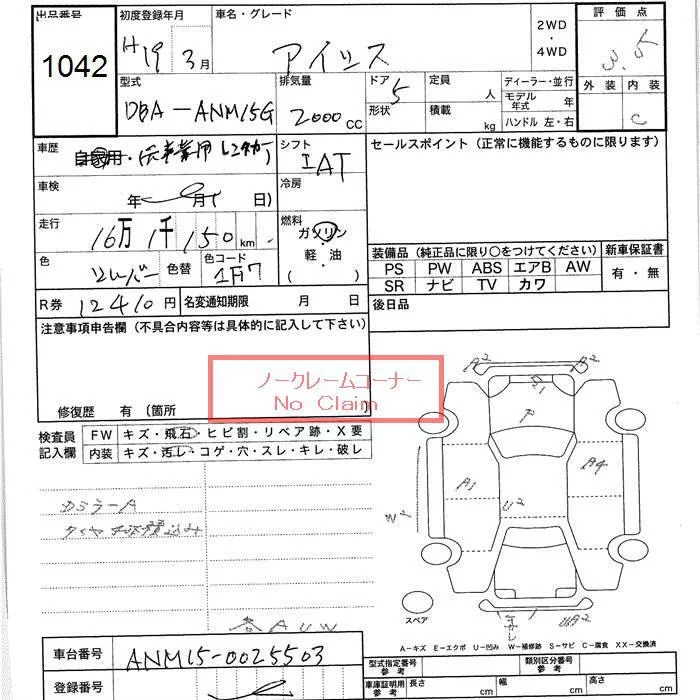 出品番号 1042
初度登録年月 H19 3月
車名・グレード アイシス
2WD・4WD
評価点 3.5
外装 内装 C
型式 DBA-ANM15G
排気量 2000cc
ドア 5
形状
定員 人
積載 kg
ディーラー・並行
モデル年式 年
ハンドル 左・右
車歴 自家用・(元事業用 レンタカー)
シフト IAT
セールスポイント(正常に機能するものに限ります)
車検 年 月 日)
冷房
走行 16万1千150km
燃料 ガソリン 軽・油 ( )
色 シルバー 色替 色コード 1F7
装備品(純正品に限り○をつけてください)
新車保証書
PS PW ABS エアB AW
SR ナビ TV カワ
有・無
R券 12410円 名変通知期限 月 日
後日品
注意事項申告欄(不具合内容等は具体的に記入して下さい)
ノークレームコーナー
No Claim
修復歴 有(箇所 )
検査員記入欄
FW キズ・飛石・ヒビ割・リペア跡・X要
内装 キズ・汚レ・コゲ・穴・スレ・キレ・破レ
A2
P
A3
A4
U2
W2
スペア
A-キズ E-エクボ U-凹み W-補修跡 S-サビ C-腐食 XX-交換済
車台番号 ANM15-0025503
登録番号
型式指定番号 類別区分番号
車庫証明用参考 長さ cm 幅 cm 高さ cm